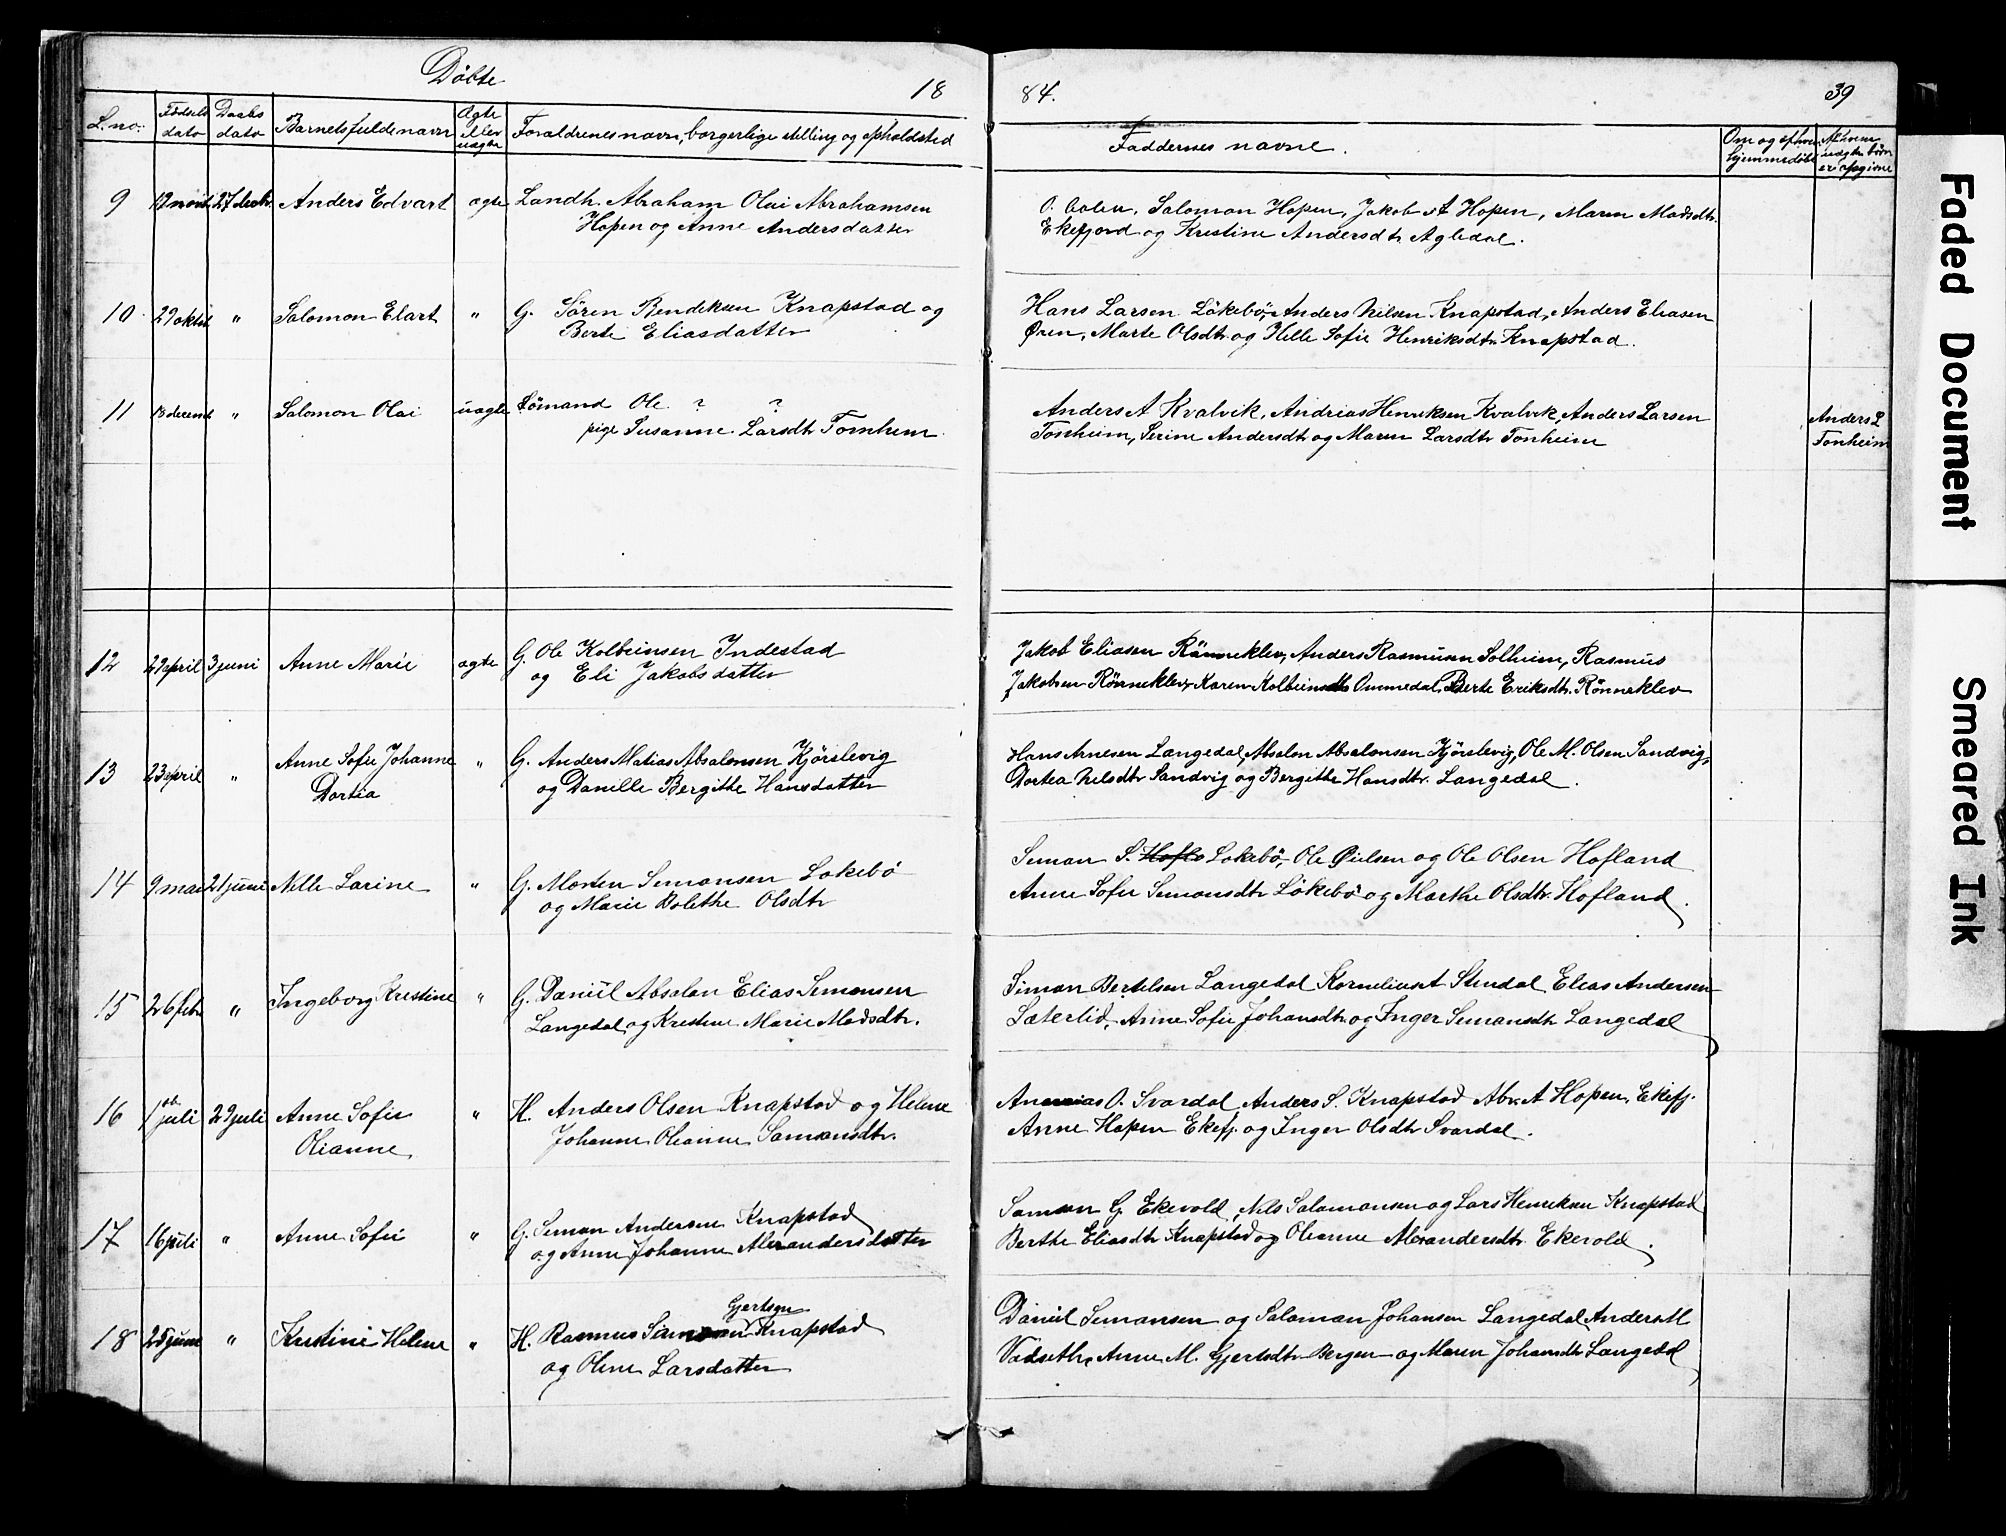 Döbte
18
84.
39
L. no.
Födsels dato
Daabs dato
Barnets fulde navn
Ægte eller uægte
Forældrenes navn, borgerlige stilling og opholdsted
Faddernes navne.
Om og af hvem hjemmedöbt
Af hvem uægte börn er opgivne
9 12 novb. 27 decbr. Anders Edvart ægte Landh. Abraham Olai Abrahamsen
Hopen og Anne Andersdatter
O. Salomon Hopen, Jakob A Hopen, Maren Madsdtr.
Ekefjord og Kristine Andersdtr Agledal.
10 29 oktbr " Salomon Elart " G. Sören Bendiksen Knapstad og
Berte Eliasdatter
Hans Larsen Lökebö, Anders Nilsen Knapstad, Anders Eliasen
Øren, Marte Olsdtr og Helle Sofie Henriksdtr Knapstad.
11 13 decemb " Salomon Olai uægte Sömand Ole ? ?
pige Susanne Larsdtr Tonheim.
Anders A Kvalvik, Andrias Henriksen Kvalvik, Anders Larsen
Tonheim, Serine Andersdtr og Maren Larsdtr Tonheim
Anders L
Tonheim
12 29 april 3 juni Anne Marie ægte G. Ole Kolbeinsen Indestad
og Eli Jakobsdatter
Jakob Eliasen Rönneklev, Anders Rasmusen Solheim, Rasmus
Jakobsen Rönneklev, Karen Kolbeinsdtr Ommedal, Berte Eriksdtr. Rönneklev
13 23 april " Anne Sofie Johanne
Dortea
" G. Anders Matias Absalonsen Kjörslevig
og Danille Bergithe Hansdatter
Hans Arnesen Langedal, Absalon Absalonsen Kjörslevig, Ole M. Olsen Sandvig,
Dortea Nilsdtr Sandvig og Bergithe Hansdtr. Langedal.
14 9 mai 21 juni Nelle Larine " G. Morten Simonsen Lökebö
og Marie Bolethe Olsdtr
Simon S. Hofl Lökebö, Ole Øielsen og Ole Olsen Hofland
Anne Sofie Simonsdtr Lökebö og Marthe Olsdtr. Hofland.
15 26 febr " Ingeborg Kristine " G. Daniel Absalon Elias Simonsen
Langedal og Kristine Marie Madsdtr.
Simon Bertelsen Langedal Kornelius A Stendal Elias Andersen
Sæterlid, Anne Sofie Johansdtr og Inger Simonsdtr Langedal
16 1ste juli 29 juli Anne Sofie
Olianne
" H. Anders Olsen Knapstad og Helene
Johanne Olianne Samonsdtr.
Ananias O. Svardal Anders S. Knapstad Abr. A Hopen, Ekefj.
Anne Hopen Ekefj. og Inger Olsdtr Svardal.
17 16 juli " Anne Sofie " G. Simon Andersen Knapstad
og Anne Johanne Alexandersdatter
Samson G Ekevold, Nils Salomonsen og Lars Henriksen Knapstad
Berthe Eliasdtr Knapstad og Olianne Alexandersdtr Ekevold.
18 25 juni " Kristine Helene " H. Rasmus Gjertsen Knapstad
og Oline Larsdatter
Daniel Simonsen og Salomon Johansen Langedal Anders M
Vadseth, Anne M. Gjertsdtr Bergen og Maren Johansdtr Langedal
Faded Document
Smeared Ink